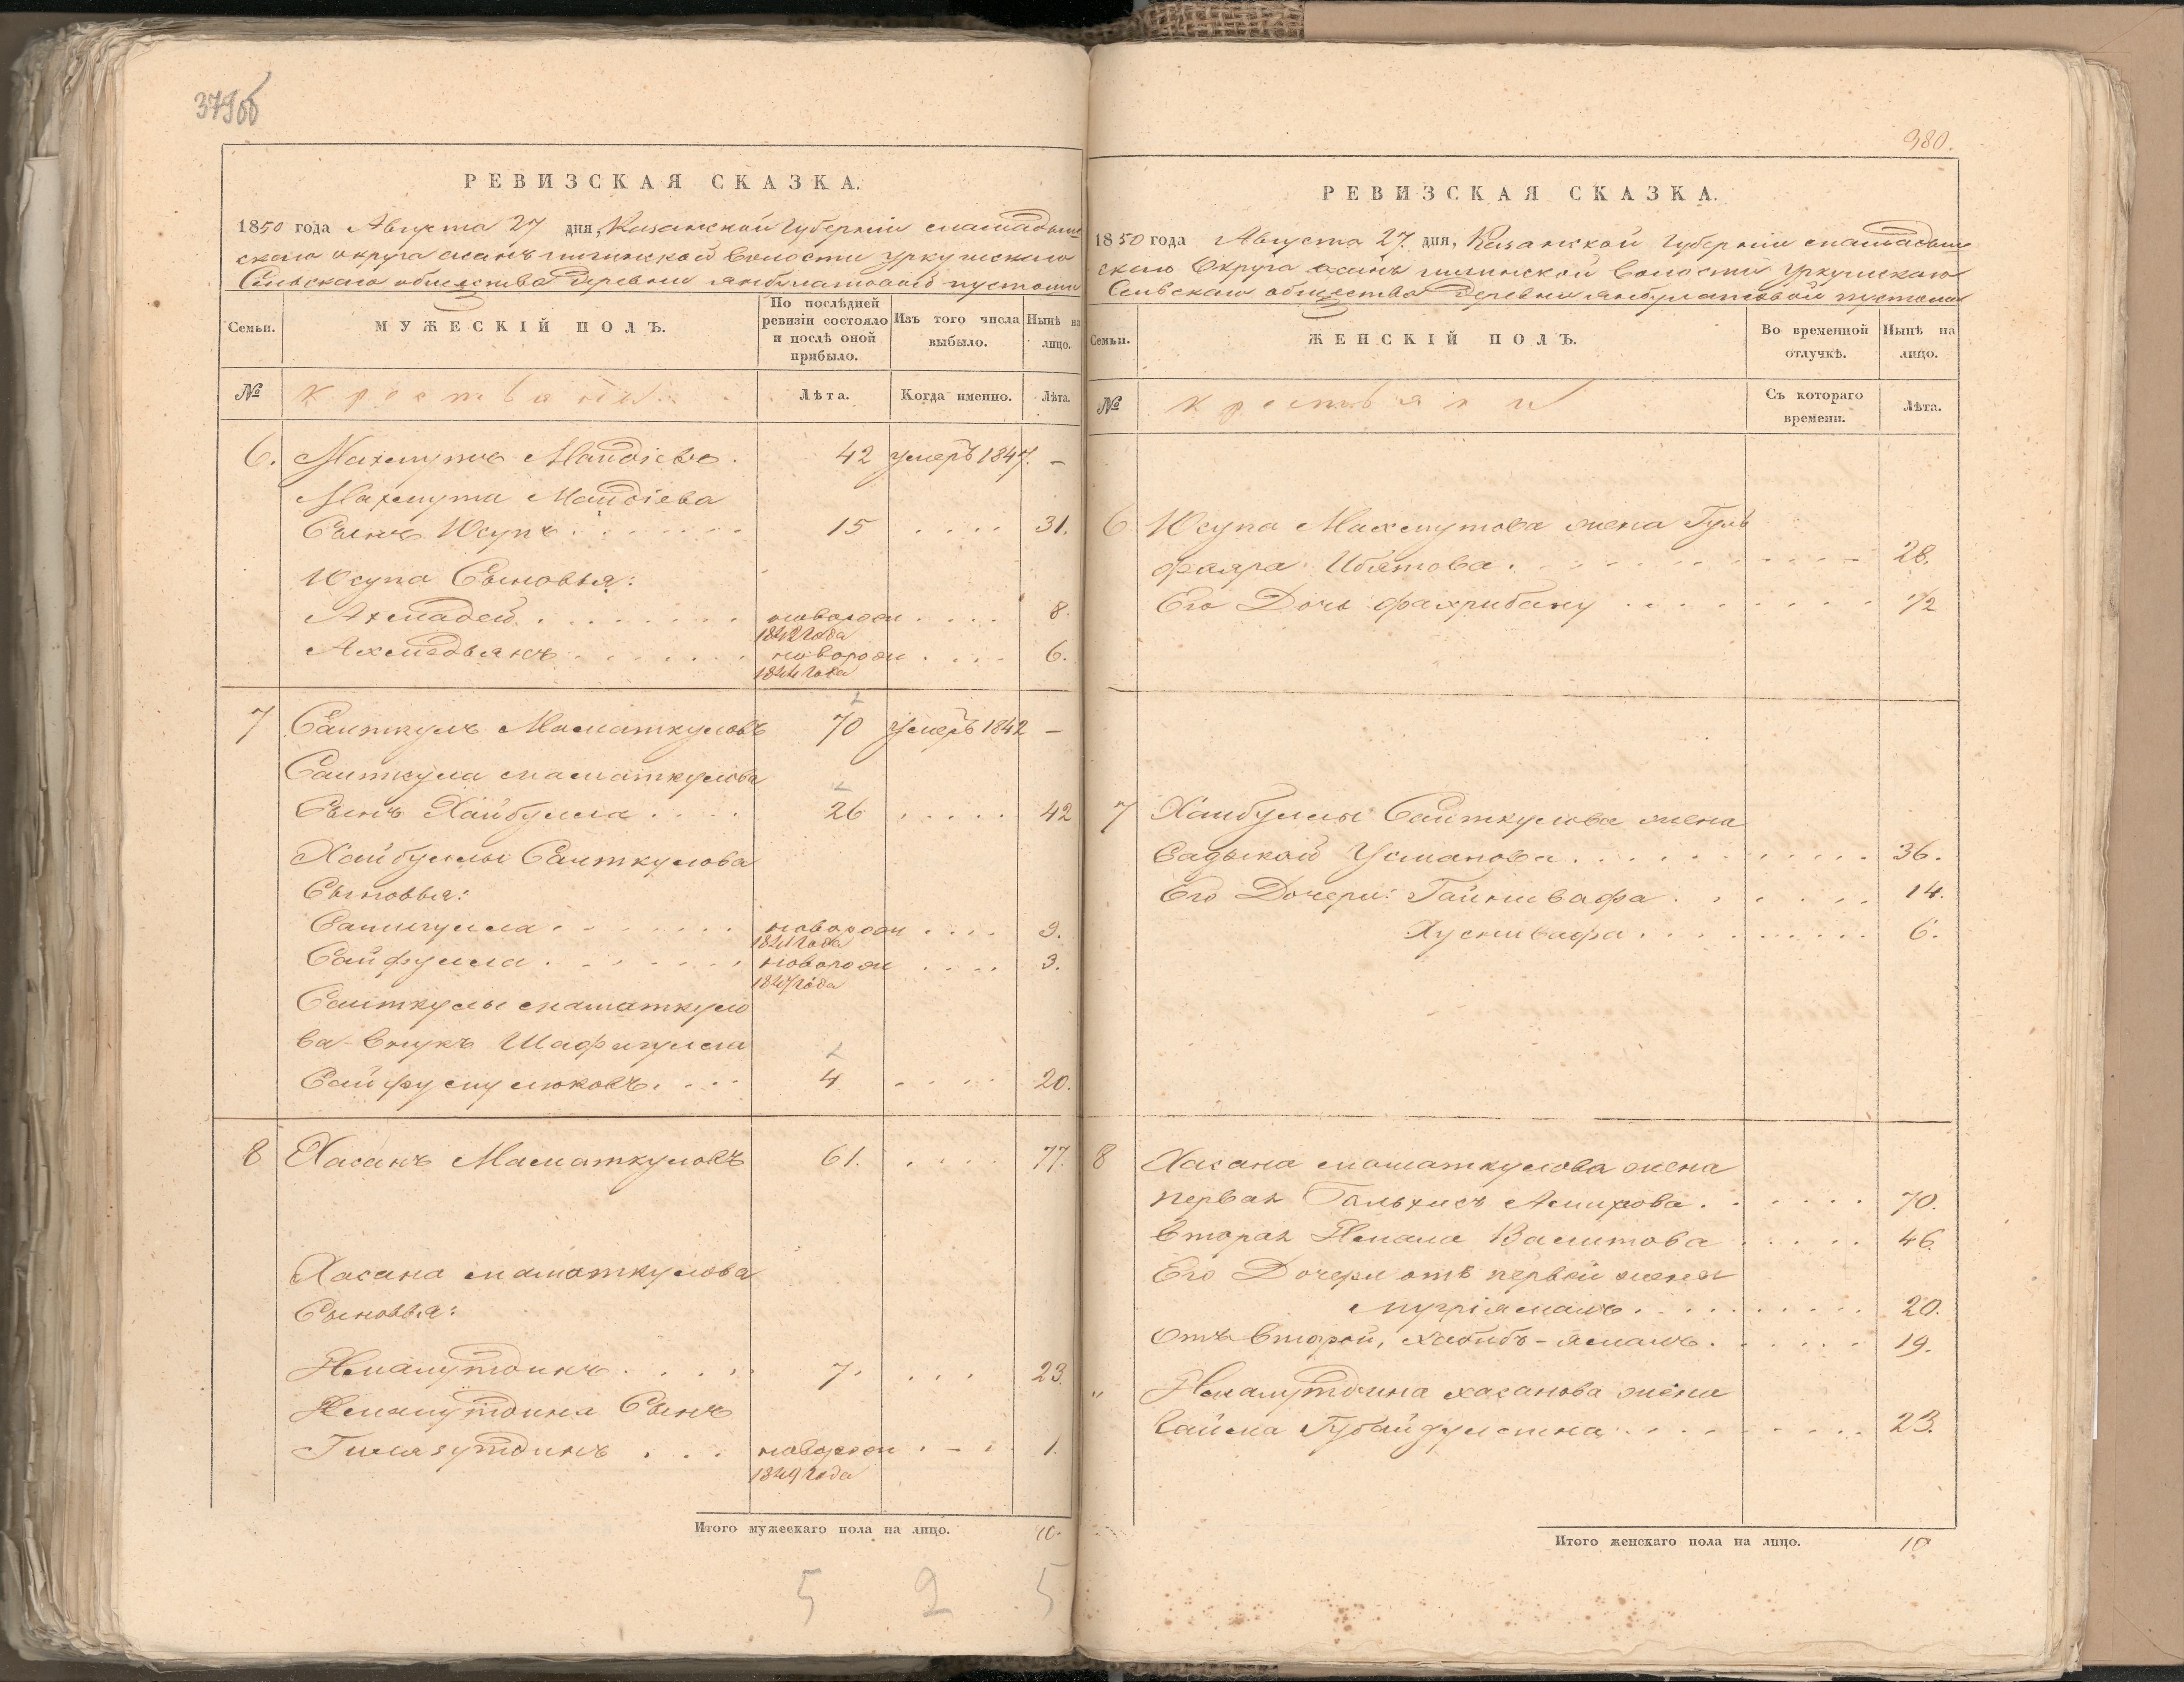 379об
РЕВИЗСКАЯ СКАЗКА.
1850 года Августа 27 дня, Казанской Губернiи мамадыш
скаго округа асанъ Волости уркушскаго
Сельскаго общества деревни пустоши
Семьи.
МУЖЕСКIЙ ПОЛЪ.
По послѣдней ревизiи состояло и послѣ оной прибыло.
Изъ того числа выбыло.
Нынѣ на лицо.
№
крестьяне
Лѣта.
Когда именно.
Лѣта.
6. Махмутъ Мандiевъ. 42 умеръ 1847. –
Махмута Мандiева
Сынъ Юсупъ 15 31.
Юсупа Сыновья:
Ахмадей новорож 8.
1842 года
Ахмедьянъ новорож 6.
1844 года
7 Саиткулъ Маматкуловъ 70 умеръ 1842 –
Саиткула маматкулова
Сынъ Хайбулла 26 42
Хайбуллы Саиткулова
Сыновья:
новорож 9.
1841 года
Сайфулла новорож 3.
1847 года
Саиткулы маматкуло
ва внукъ Шафигулла
4 20.
8 Хасанъ Маматкуловъ 61. 77.
Хасана маматкулова
Сыновья:
Жмалутдинъ 7. 23.
Жмалутдина Сынъ
новорож 1.
1849 года
Итого мужескаго пола на лицо. 10.
5 2 5
380.
РЕВИЗСКАЯ СКАЗКА.
1850 года Августа 27. дня, Казанской Губернiи мамадыш
скаго Округа асанъ Волости уркушскаго
Сельскаго общества деревни янбулатовой пустоши
Семьи.
ЖЕНСКIЙ ПОЛЪ.
Во временной отлучкѣ.
Нынѣ на лицо.
№
крестьяне
Съ котораго времени.
Лѣта.
6 Юсупа Махмутова жена Гуль
фаяра 28.
Его Дочь фахрибану 1/2
7 Хайбуллы Саиткулова жена
Усманова 36.
Его Дочери: Гайнивафа 14.
Хуснивафа 6.
8 Хасана маматкулова жена
первая Амирова 70.
вторая Валитова 46.
Его Дочери отъ первой жены
20.
отъ второй, хабибъ-ямалъ 19.
" Жмалутдина хасанова жена
Губайдуллина 23.
Итого женскаго пола на лицо. 10